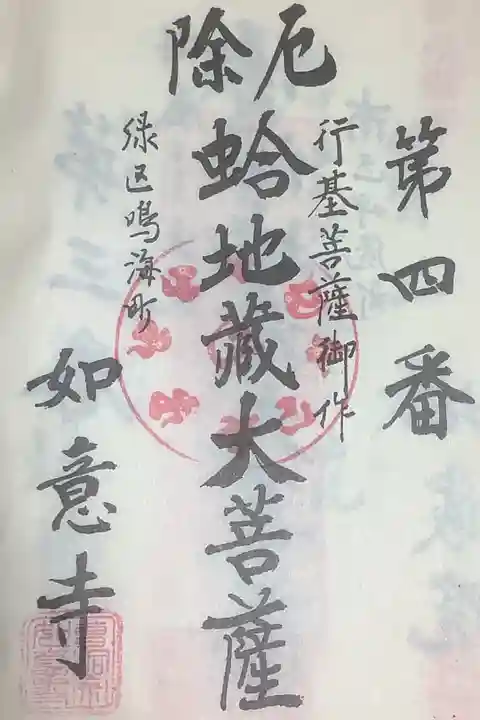 厄除
第四番
行基菩薩御作
蛤地蔵大菩薩
緑区鳴海町
如意寺